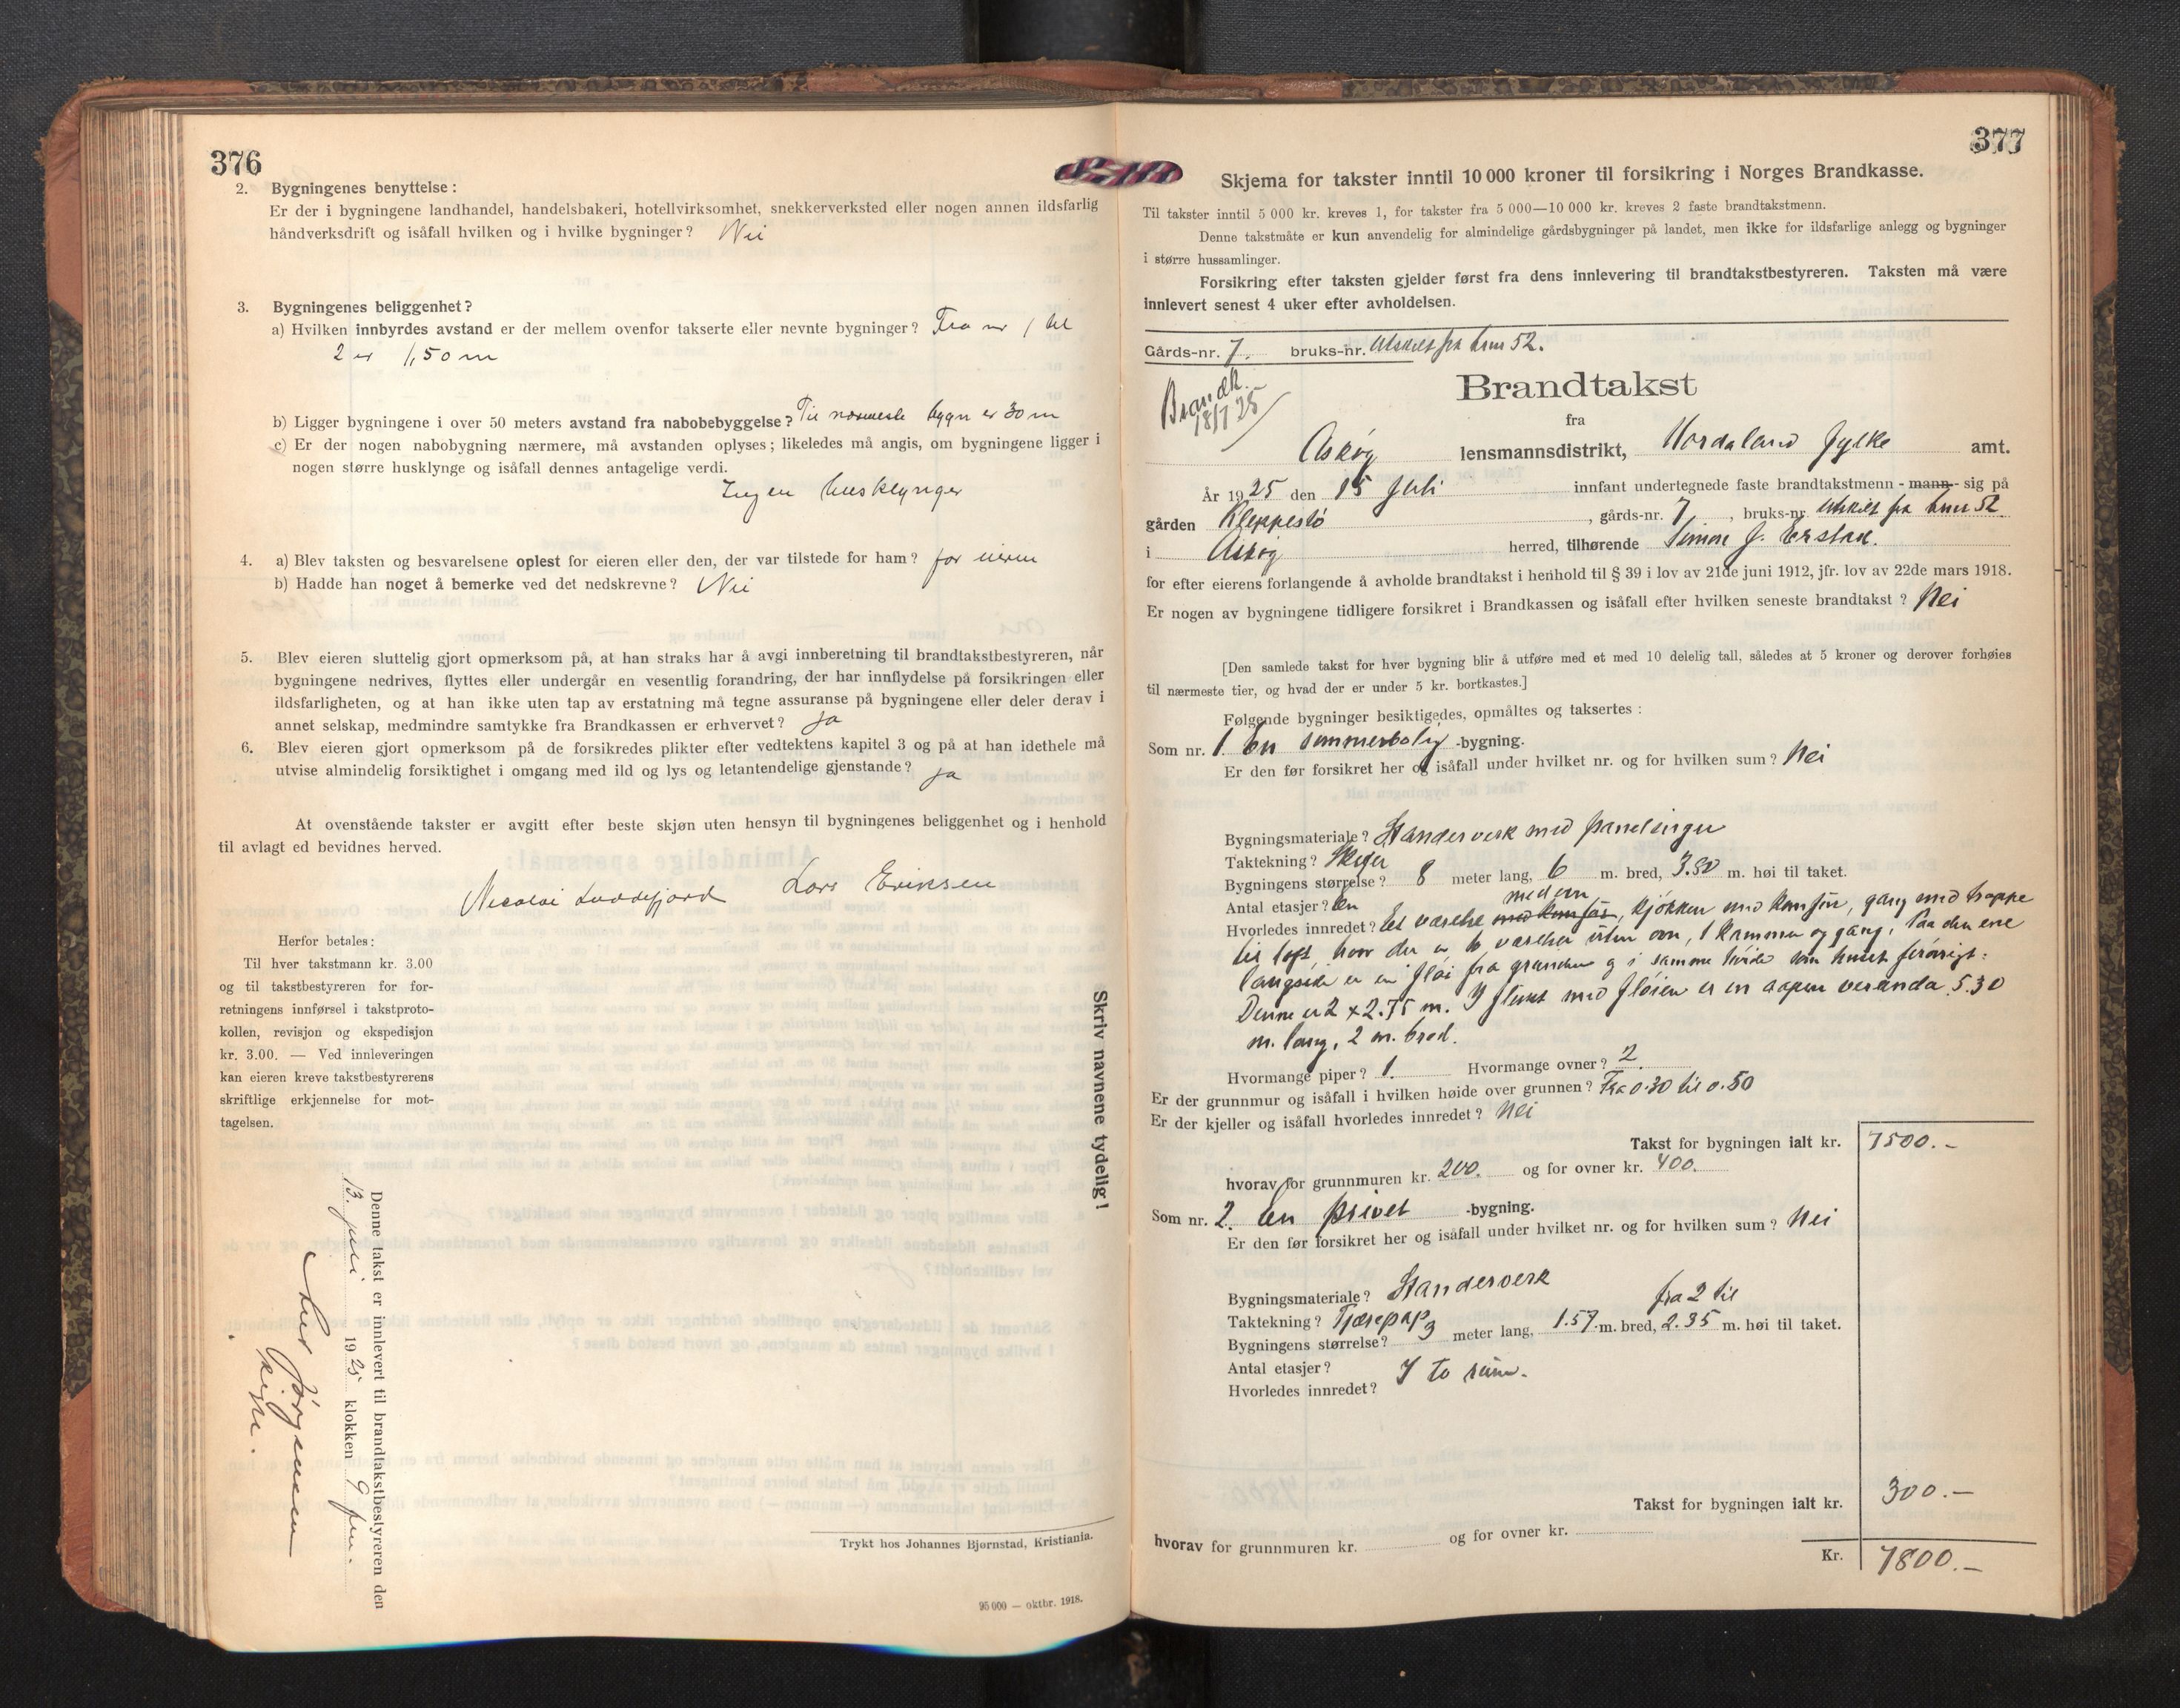 376
2. Bygningenes benyttelse:
Er der i bygningene landhandel, handelsbakeri, hotellvirksomhet, snekkerverksted eller nogen annen ildsfarlig
håndverksdrift og isåfall hvilken og i hvilke bygninger? Nei
3. Bygningenes beliggenhet?
a) Hvilken innbyrdes avstand er der mellem ovenfor takserte eller nevnte bygninger? Fra nr 1 til
2 er 1,50 m
b) Ligger bygningene i over 50 meters avstand fra nabobebyggelse? Til nærmeste bygn er 30 m
c) Er der nogen nabobygning nærmere, må avstanden oplyses; likeledes må angis, om bygningene ligger i
nogen større husklynge og isåfall dennes antagelige verdi.
Ingen husklynger
4. a) Blev taksten og besvarelsene oplest for eieren eller den, der var tilstede for ham? for eieren
b) Hadde han noget å bemerke ved det nedskrevne? Nei
5. Blev eieren sluttelig gjort opmerksom på, at han straks har å avgi innberetning til brandtakstbestyreren, når
bygningene nedrives, flyttes eller undergår en vesentlig forandring, der har innflydelse på forsikringen eller
ildsfarligheten, og at han ikke uten tap av erstatning må tegne assuranse på bygningene eller deler derav i
annet selskap, medmindre samtykke fra Brandkassen er erhvervet? Ja
6. Blev eieren gjort opmerksom på de forsikredes plikter efter vedtektens kapitel 3 og på at han idethele må
utvise almindelig forsiktighet i omgang med ild og lys og letantendelige gjenstande? Ja
At ovenstående takster er avgitt efter beste skjøn uten hensyn til bygningenes beliggenhet og i henhold
til avlagt ed bevidnes herved.
Nicolai Luddefjord Lars Eriksen
Herfor betales:
Til hver takstmann kr. 3.00
og til takstbestyreren for for-
retningens innførsel i takstproto-
kollen, revisjon og ekspedisjon
kr. 3.00. — Ved innleveringen
kan eieren kreve takstbestyrerens
skriftlige erkjennelse for mot-
tagelsen.
Skriv navnene tydelig!
Denne takst er innlevert til brandtakstbestyreren den
13. juli 1925 klokken 9 fm.
Jørgensen
Trykt hos Johannes Bjørnstad, Kristiania.
95 000 — oktbr. 1918.
377
Skjema for takster inntil 10 000 kroner til forsikring i Norges Brandkasse.
Til takster inntil 5 000 kr. kreves 1, for takster fra 5 000—10 000 kr. kreves 2 faste brandtakstmenn.
Denne takstmåte er kun anvendelig for almindelige gårdsbygninger på landet, men ikke for ildsfarlige anlegg og bygninger
i større hussamlinger.
Forsikring efter taksten gjelder først fra dens innlevering til brandtakstbestyreren. Taksten må være
innlevert senest 4 uker efter avholdelsen.
Gårds-nr. 7. bruks-nr. Utskilt fra bnr 52.
Brandk. 18/7 25
Brandtakst
fra
Askøy lensmannsdistrikt, Hordaland fylke amt.
År 1925 den 15 Juli innfant undertegnede faste brandtakstmenn - mann - sig på
gården Kleppestø, gårds-nr. 7, bruks-nr. utskilt fra bnr 52
i Askøy herred, tilhørende Simon J. Erstad.
for efter eierens forlangende å avholde brandtakst i henhold til § 39 i lov av 21de juni 1912, jfr. lov av 22de mars 1918.
Er nogen av bygningene tidligere forsikret i Brandkassen og isåfall efter hvilken seneste brandtakst? Nei
[Den samlede takst for hver bygning blir å utføre med et med 10 delelig tall, således at 5 kroner og derover forhøies
til nærmeste tier, og hvad der er under 5 kr. bortkastes.]
Følgende bygninger besiktigedes, opmåltes og taksertes:
Som nr. 1. En sommerbolig -bygning.
Er den før forsikret her og isåfall under hvilket nr. og for hvilken sum? Nei
Bygningsmateriale? Standerverk med panelinger
Taktekning? Skifer
Bygningens størrelse? 8 meter lang, 6 m. bred, 3.50 m. høi til taket.
Antal etasjer? En
med ovn
Hvorledes innredet? Et værelse med komfür, kjøkken med komfür, gang med trappe
til loft, hvor der er to værelser uten ovn, 1 kammer og gang. Paa den ene
langside er en fløi fra grunden og i samme høide som huset forøvrigt:
Denne er 2 x 2.75 m. I flukt med fløien er en aapen veranda 5.30
m. lang, 2 m. bred.
Hvormange piper? 1. Hvormange ovner? 2
Er der grunnmur og isåfall i hvilken høide over grunnen? Fra 0.30 til 0.50
Er der kjeller og isåfall hvorledes innredet? Nei
Takst for bygningen ialt kr. 7500.-
hvorav for grunnmuren kr. 200. og for ovner kr. 400.
Som nr. 2. En privet -bygning.
Er den før forsikret her og isåfall under hvilket nr. og for hvilken sum? Nei
Bygningsmateriale? Standerverk
Taktekning? Tjærepap fra 2 til
Bygningens størrelse? 3 meter lang, 1.57 m. bred, 2.35 m. høi til taket.
Antal etasjer?
Hvorledes innredet? I to rum.
Takst for bygningen ialt kr. 300.-
hvorav for grunnmuren kr. og for ovner kr.
Kr. 7800.-